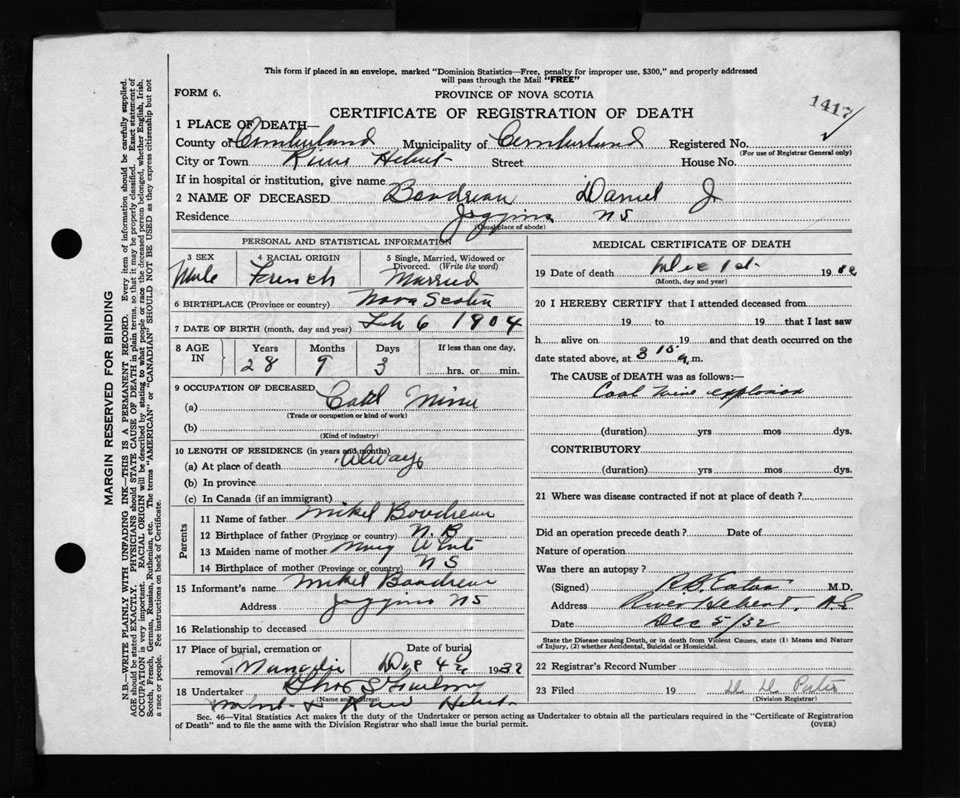 This form if placed in an envelope, marked "Dominion Statistics—Free, penalty for improper use, $300," and properly addressed
will pass through the Mail "FREE"
FORM 6.
PROVINCE OF NOVA SCOTIA
CERTIFICATE OF REGISTRATION OF DEATH
1417
1 PLACE OF DEATH—
County of Cumberland Municipality of Cumberland Registered No.
(For use of Registrar General only)
City or Town River Hebert Street House No.
If in hospital or institution, give name
2 NAME OF DECEASED Boudreau Daniel J
Residence Joggins NS
(Usual place of abode)
PERSONAL AND STATISTICAL INFORMATION
3 SEX 4 RACIAL ORIGIN 5 Single, Married, Widowed or
Divorced. (Write the word)
Male French Married
6 BIRTHPLACE (Province or country) Nova Scotia
7 DATE OF BIRTH (month, day and year) Feb 6 1904
8 AGE IN Years Months Days If less than one day,
28 9 3 hrs. or min.
9 OCCUPATION OF DECEASED
(a) Coal Miner
(Trade or occupation or kind of work)
(b)
(Kind of industry)
10 LENGTH OF RESIDENCE (in years and months)
(a) At place of death Always
(b) In province
(c) In Canada (if an immigrant)
Parents
11 Name of father Mikel Boudreau
12 Birthplace of father (Province or country) N.B
13 Maiden name of mother Mary
14 Birthplace of mother (Province or country) N S
15 Informant's name Mikel Boudreau
Address Joggins NS
16 Relationship to deceased
17 Place of burial, cremation or Date of burial
removal Dec 4 1932
18 Undertaker
(Name and address)
River Hebert
MEDICAL CERTIFICATE OF DEATH
19 Date of death Dec 1st 19
(Month, day and year)
20 I HEREBY CERTIFY that I attended deceased from
19 to 19 that I last saw
h alive on 19 and that death occurred on the
date stated above, at 8 15 a m.
The CAUSE of DEATH was as follows:—
Coal mine explosion
(duration) yrs mos dys.
CONTRIBUTORY
(duration) yrs mos dys.
21 Where was disease contracted if not at place of death?
Did an operation precede death? Date of
Nature of operation
Was there an autopsy?
(Signed) R.B. Eaton M.D.
Address River Hebert, NS
Date Dec 5/32
State the Disease causing Death, or in death from Violent Causes, state (1) Means and Nature
of Injury, (2) whether Accidental, Suicidal or Homicidal.
22 Registrar's Record Number
23 Filed 19
(Division Registrar)
Sec. 46—Vital Statistics Act makes it the duty of the Undertaker or person acting as Undertaker to obtain all the particulars required in the "Certificate of Registration
of Death" and to file the same with the Division Registrar who shall issue the burial permit.
(OVER)
MARGIN RESERVED FOR BINDING
N.B.—WRITE PLAINLY WITH UNFADING INK—THIS IS A PERMANENT RECORD. Every item of information should be carefully supplied.
AGE should be stated EXACTLY. PHYSICIANS should STATE CAUSE OF DEATH in plain terms, so that it may be properly classified. Exact statement of
OCCUPATION is very important. RACIAL ORIGIN will be described by stating to what people or race the deceased person belonged, whether English, Irish,
Scotch, French, German, Russian, Ruthenian, etc. The terms "AMERICAN" or "CANADIAN" SHOULD NOT BE USED as they express citizenship but not
a race or people. Fee instructions on back of Certificate.